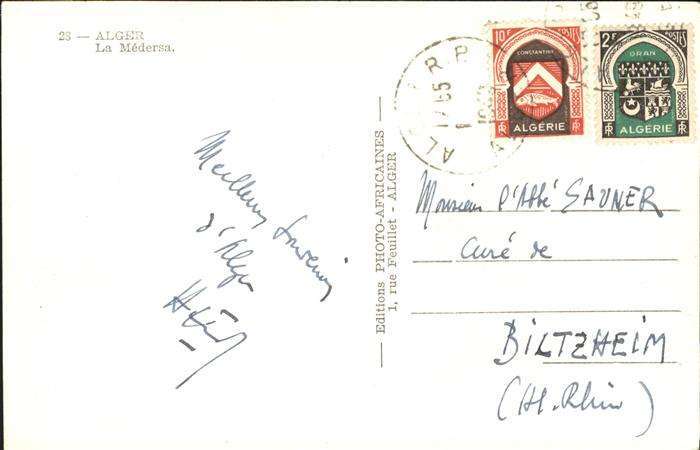 23 — ALGER
La Médersa.
Meilleurs Souvenirs
d'Alger
Editions PHOTO-AFRICAINES
1, rue Feuillet - ALGER
10F POSTES
CONSTANTINE
RF RF
ALGÉRIE
2F POSTES
ORAN
RF RF
ALGÉRIE
ALGER R P
17 05
Monsieur l'Abbé SAUNER
Curé de
BILTZHEIM
(Ht. Rhin)